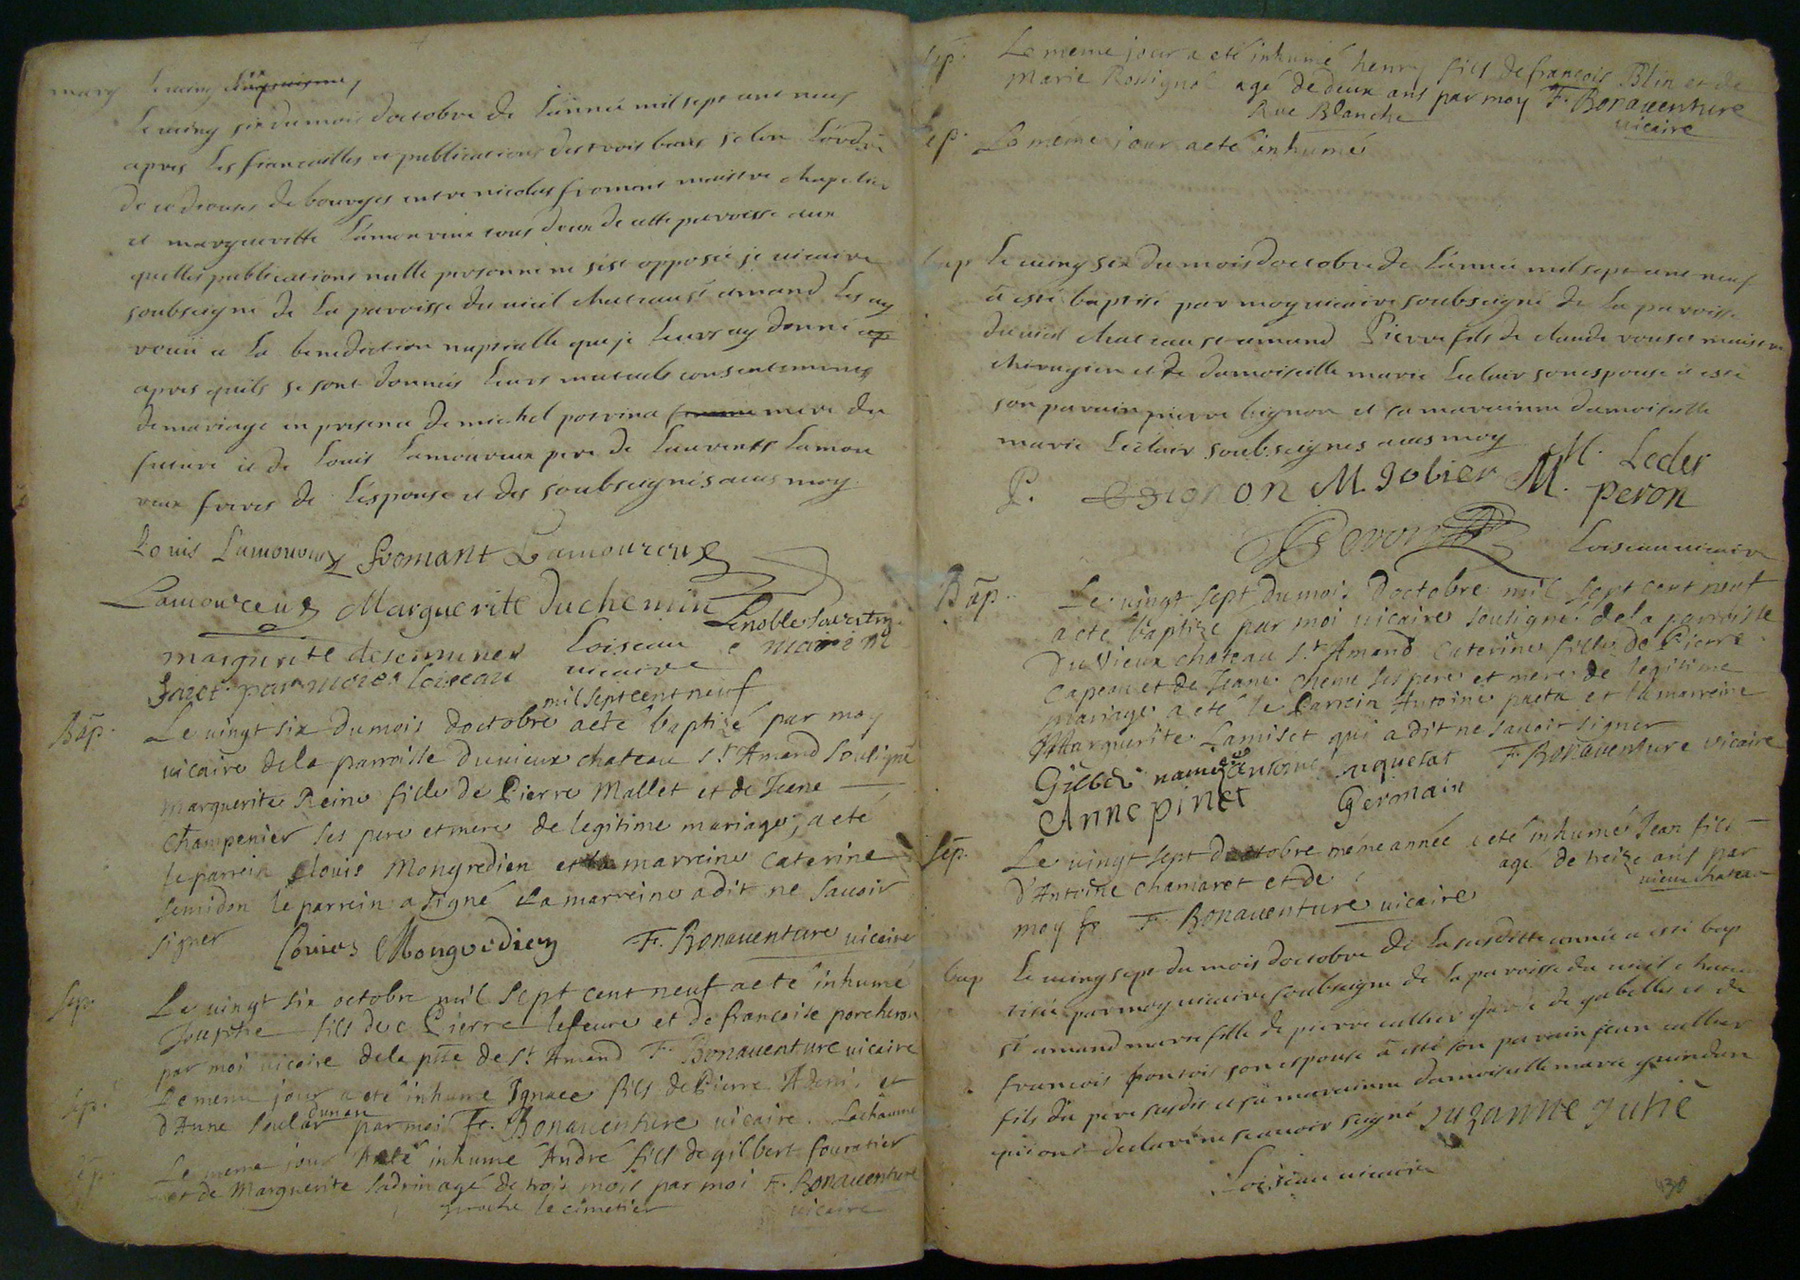 mary Le ving
Le ving six du mois doctobre de Lannee mil sept cent neuf
apres les fiancailles et publications des trois bans selon Lordre
de ce diocese de bourges entre nicolas fromant maistre chapelier
et marguerite Lamoureux tous deux de cette paroisse aux
quelles publications nulle personne ne sest opposée je vicaire
soubseigné de La paroisse du vieil chateau st amand Les ay
a La benediction nuptialle que je Leurs ay donné
apres quils se sont donnés Leurs mutuels consentements
de mariage en presence de michel mere du
future et de Louis Lamoureux pere de Laurents Lamou
reux freres de Lespouse et des soubseignés avec moy
Louis Lamoureux fromant Lamoureux
Lamoureux Marguerite Duchemin Lenoble
marguerite Loiseau
vicaire
mil sept cent neuf
Bap. Le vingt six du mois doctobre a eté baptizé par moy
vicaire de la parroisse du vieux chateau St Amand Souligné
marguerite Reine fille de Pierre Mallet et de Jeane
Champenier ses pere et mere de legitime mariage, a eté
le parrein Louis Mongredien et la marreine Caterine
Semidon le parrein a signé La marreine a dit ne savoir
signer Louies Mongredien F. Bonaventure vicaire
Sep. Le vingt six octobre mil sept cent neuf a eté inhumé
Jouephe fils de Pierre lefeure et de francoise porcheron
par moi vicaire de la psse de St Amand F. Bonaventure vicaire
Sep. Le meme jour a eté inhumé Ignace fils de Pierre Adeni et
d'Anne Soulat par moi Fr. Bonaventure vicaire. Lachaume
Sep. Le meme jour A eté inhumé André fils de gilbert fouratier
et de Marguerite Sadrin agé de trois mois par moi F. Bonaventure
proche le cimetier vicaire
Sep. Le meme jour a eté inhumé henry fils de françois Blin et de
Marie Rossignol agé de deux ans par moy F. Bonaventure
Rue Blanche vicaire
Sep. Le méme jour a eté inhumé
bap Le ving six du mois doctobre de Lannee mil sept cent neuf
a esté baptisé par moy vicaire soubseigné de La paroisse
du vieil chateau st amand Pierre fils de claude rousel maistre
chirugien et de damoiselle marie Leclair son espouse a esté
son parain pierre bignon et sa maraine damoiselle
marie Leclair soubseignes avec moy
P. Bignon M. Jobier M. M. Lecler
peron
Peron Loiseau vicaire
Bap. Le vingt sept du mois doctobre mil sept cent neuf
a eté baptizé par moi vicaire souligné de la parroisse
du vieux chateau St Amand Caterine fille de Pierre
Capeau et de Jeane Chenu ses pere et mere de legitime
mariage a eté le Parrein Antoine et la marreine
Marguerite Lamiset qui a dit ne savoir signer
Gilber F. Bonaventure vicaire
Anne pinet Germain
Sep. Le vingt sept doctobre méme année a eté inhumé Jean fils
d'Antoine chamaret et de agé de treize ans par
moy F. Bonaventure vicaire vieux chateau
bap Le ving sept du mois doctobre de La susditte annee a esté bap
tisée par moy vicaire soubseigné de la paroisse du vieil chateau
st amand marie fille de pierre cullier garde de gabelles et de
francois pontois son espouse a esté son parain jean cullier
fils du pere susdit et sa maraine damoiselle marie
qui ont declaré ne scavoir seigné Suzanne Jutié
Loiseau vicaire
30